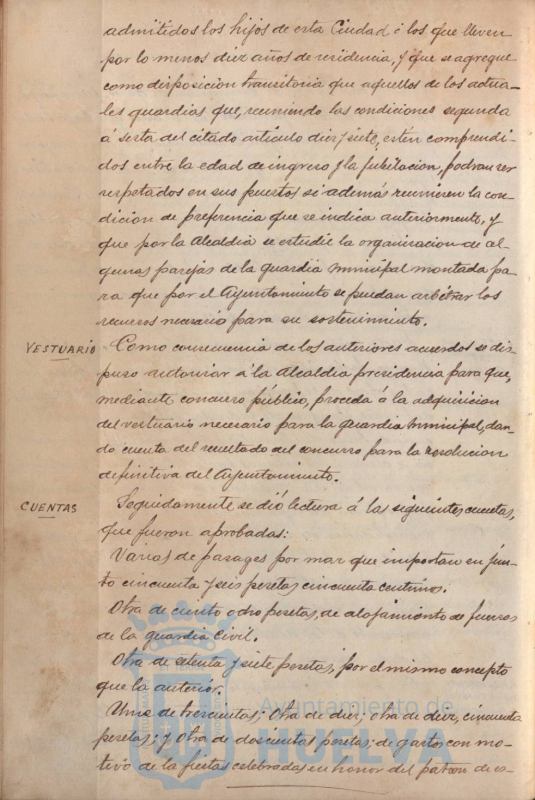 admitidos los hijos de esta Ciudad ó los que lleven
por lo menos diez años de residencia, y que se agregue
como disposicion transitoria que aquellos de los actua-
les guardias que, reuniendo las condiciones segunda
á sesta del citado artículo diez y siete, esten comprendi-
dos entre la edad de ingreso y la jubilacion, podran ser
respetados en sus puestos si además reunieren la con-
dicion de preferencia que se indica anteriormente, y
que por la Alcaldia se estudie la organizacion de al-
gunas parejas de la guardia municipal montada pa-
ra que por el Ayuntamiento se puedan arbitrar los
recursos necesario para su sostenimiento.
VESTUARIO
Como consecuencia de los anteriores acuerdos se dis-
puso autorizar á la Alcaldia presidencia para que,
mediante concurso público, proceda á la adquisicion
del vestuario necesario para la guardia municipal, dan-
do cuenta del resultado del concurso para la resolucion
definitiva del Ayuntamiento.
CUENTAS
Seguidamente se dió lectura á las siguientes cuentas,
que fueron aprobadas:
Varias de pasages por mar que importan en jun-
to cincuenta y seis pesetas cincuenta centimos.
Otra de ciento ocho pesetas, de alojamiento de fuerzas
de la guardia Civil.
Otra de setenta y siete pesetas, por el mismo concepto
que la anterior.
Una de trescientas; otra de diez; otra de diez, cincuenta
pesetas; y otra de doscientas pesetas; de gastos con mo-
tivo de la fiestas celebradas en honor del patron de es-
Ayuntamiento de
HUELVA